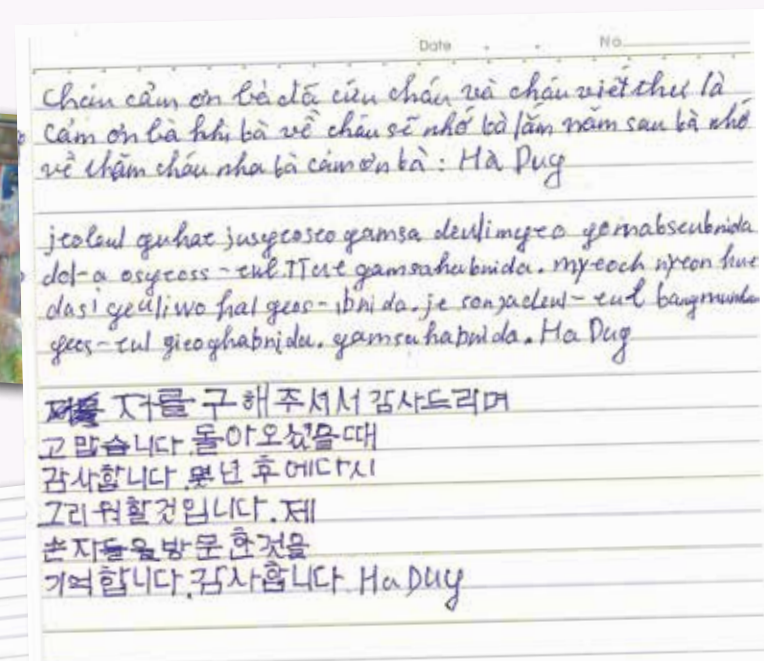 Date . . No
Cháu cảm ơn bà đã cứu cháu và cháu viết thư là
cảm ơn bà khi bà về cháu sẽ nhớ bà lắm năm sau bà nhớ
về thăm cháu nha bà cảm ơn bà : Hà Duy
jeoleul guhae jusyeoseo gamsa deulimyeo gomabseubnida
dol-a osyeoss-eul TTae gamsahabnida. myeoch nyeon hue
dasi geuliwo hal geos-ibnida. je sonjadeul-eul bangmunhan
geos-eul gieoghabnida. gamsahabnida. Ha Duy
저를 구해주셔서 감사드리며
고맙습니다. 돌아오셨을때
감사합니다. 몇년 후에다시
그리워할것입니다. 제
손자들을방문한것을
기억합니다. 감사합니다. Ha Duy